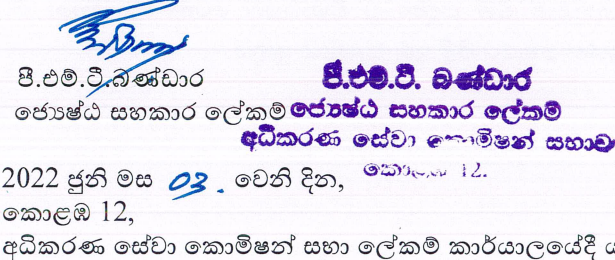 පී.එම්.ටී.බණ්ඩාර
ජ්‍යෙෂ්ඨ සහකාර ලේකම්
පී.එම්.ටී. බණ්ඩාර
ජ්‍යෙෂ්ඨ සහකාර ලේකම්
අධිකරණ සේවා කොමිෂන් සභාව
කොළඹ 12.
2022 ජුනි මස 03. වෙනි දින,
කොළඹ 12,
අධිකරණ සේවා කොමිෂන් සභා ලේකම් කාර්යාලයේදී